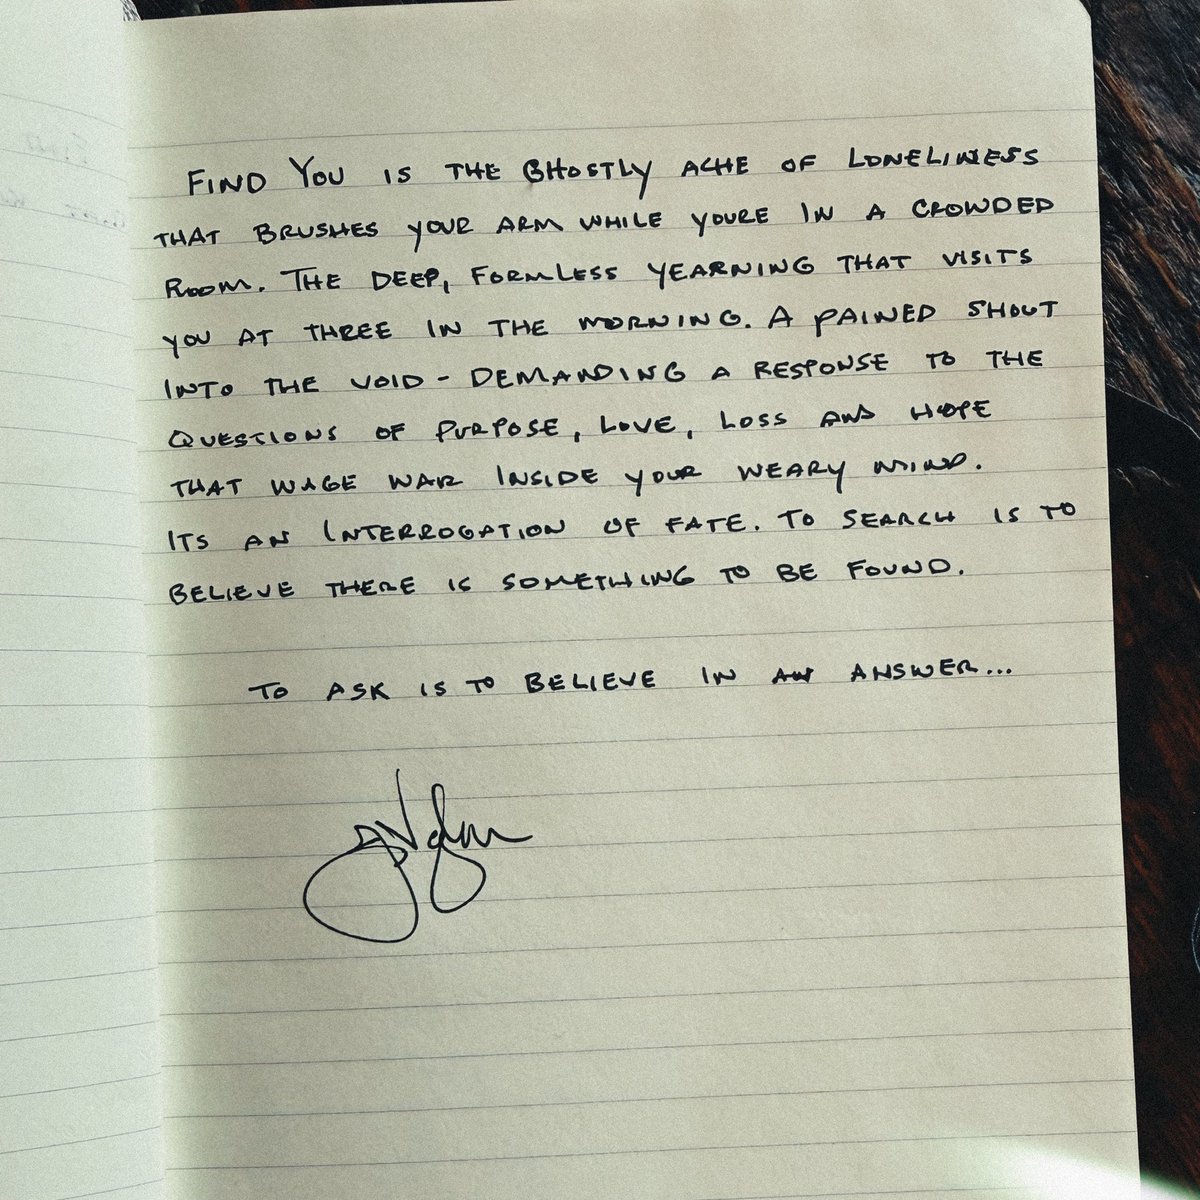 FIND YOU IS THE GHOSTLY ACHE OF LONELINESS
THAT BRUSHES YOUR ARM WHILE YOURE IN A CROWDED
ROOM. THE DEEP, FORMLESS YEARNING THAT VISITS
YOU AT THREE IN THE MORNING. A PAINED SHOUT
INTO THE VOID - DEMANDING A RESPONSE TO THE
QUESTIONS OF PURPOSE, LOVE, LOSS AND HOPE
THAT WAGE WAR INSIDE YOUR WEARY MIND.
ITS AN INTERROGATION OF FATE. TO SEARCH IS TO
BELIEVE THERE IS SOMETHING TO BE FOUND.
TO ASK IS TO BELIEVE IN AN ANSWER...